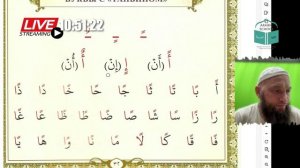 БУКВЫ С «ТАНВИНОМ»
LIVE 10:51:22
STREAMING
أً (أَنْ) إٍ (إِنْ) أٌ (أُنْ)
أً بًا تًا ثًا جًا حًا خًا دًا ذًا
رًا زًا سًا شًا صًا ضًا طًا ظًا عًا غًا
فًا قًا كًا لًا مًا نًا وًا هًا يًا